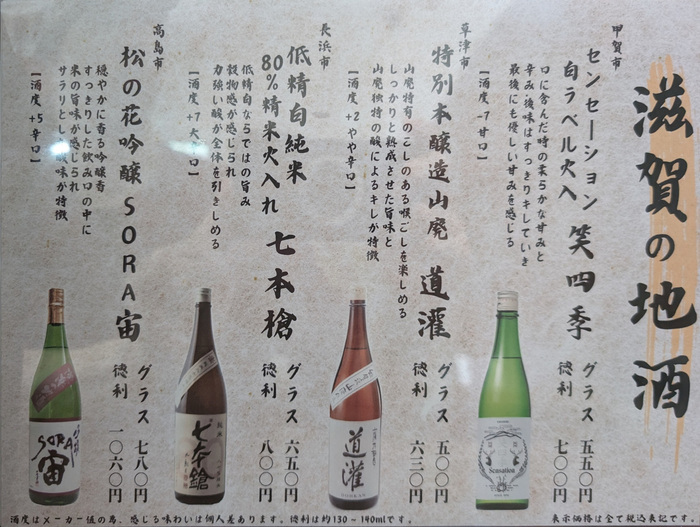 滋賀の地酒
甲賀市
センセーション
白ラベル火入 笑四季
口に含んだ時の柔らかな甘みと
辛み。後味はすっきりキレていき
最後にも優しい甘みを感じる
【酒度 -7 甘口】
グラス 五五〇円
徳利 七〇〇円
草津市
特別本醸造山廃 道灌
山廃特有のこしのある喉ごしを楽しめる
しっかりと熟成させた旨味と
山廃独特の酸によるキレが特徴
【酒度 +2 やや辛口】
グラス 五〇〇円
徳利 六三〇円
長浜市
低精白純米
80%精米火入れ 七本槍
低精白ならではの旨み
穀物感が感じられ
力強い酸が全体を引きしめる
【酒度 +7 大辛口】
グラス 六五〇円
徳利 八〇〇円
高島市
松の花吟醸SORA宙
穏やかに香る吟醸香
すっきりした飲み口の中に
米の旨味が感じられ
サラリとした酸味が特徴
【酒度 +5 辛口】
グラス 七八〇円
徳利 一〇六〇円
Sensation
道灌
七本鎗
SORA
宙
酒度はメーカー値の為、感じる味わいは個人差あります。徳利は約130~140mlです。
表示価格は全て税込表記です。